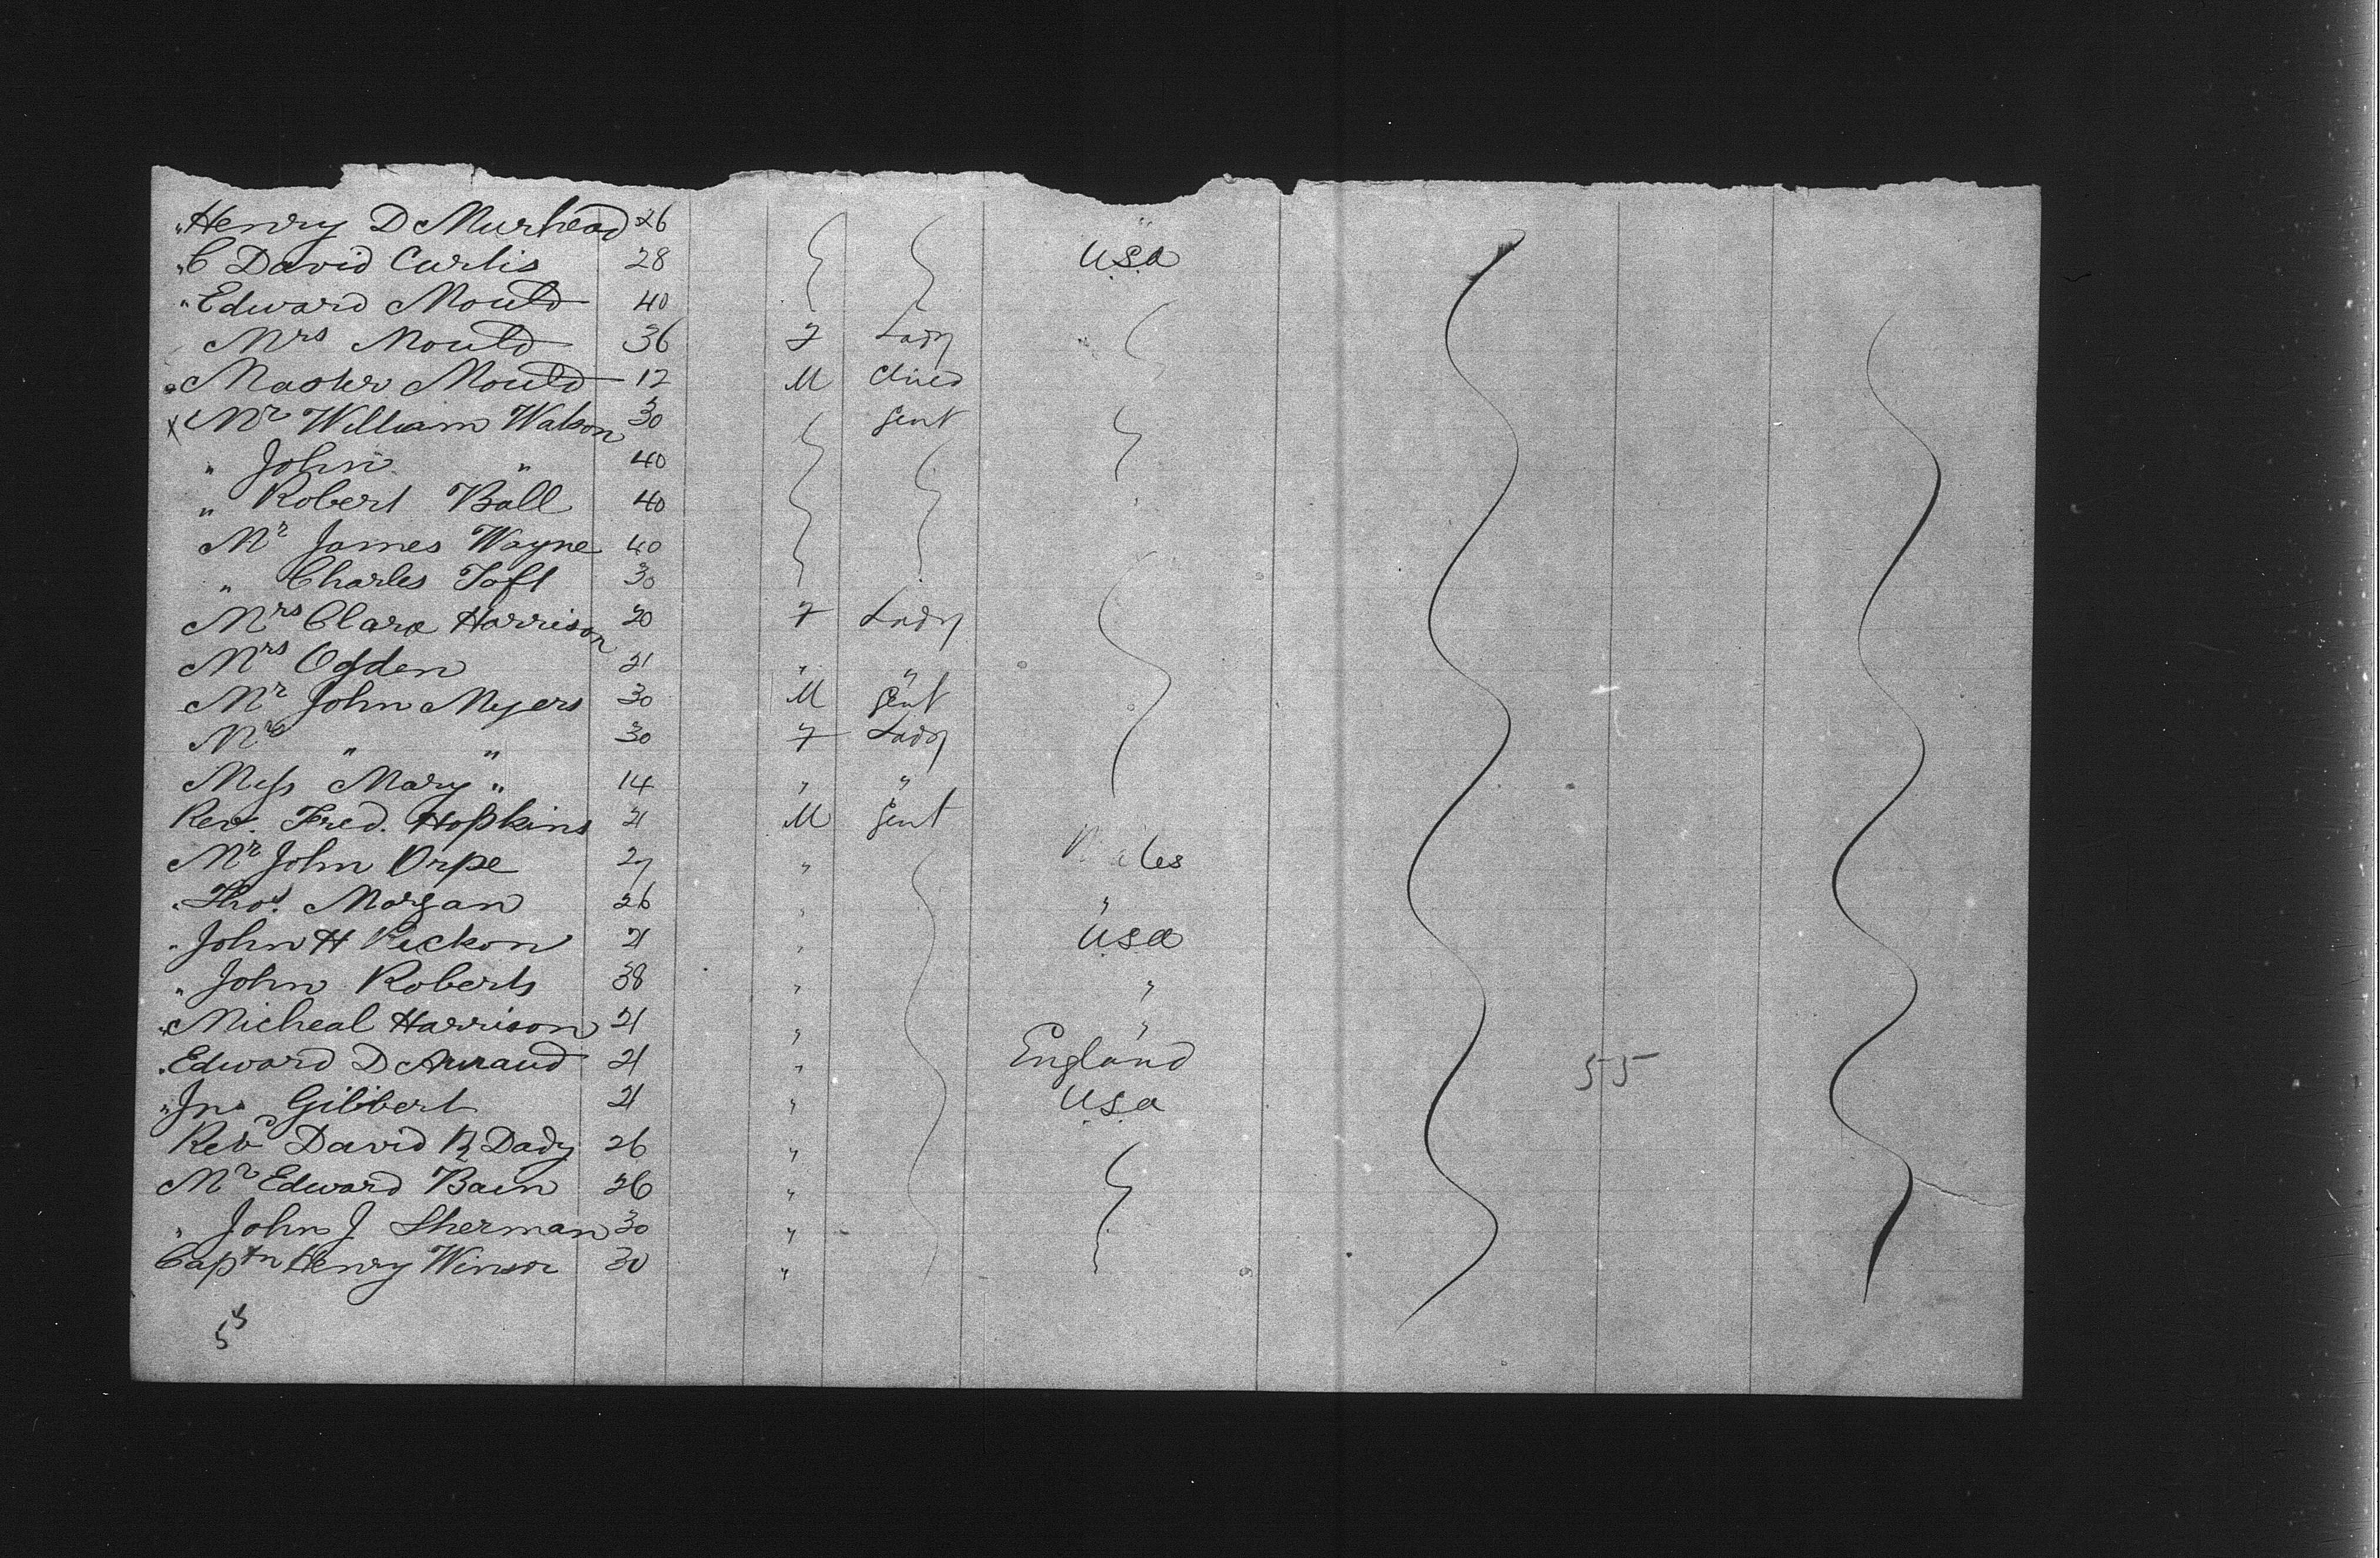 " Henry D Murhead 26
" C David Curtis 28 U.S.a
" Edward Mould 40
Mrs Mould 36 F Lady
" Master Mould 12 M Child
x Mr William Watson 30 gent
" John " 40
" Robert Ball 40
Mr James Wayne 40
" Charles Toft 30
Mrs Clara Harrison 20 F Lady
Mrs Ogden 21 " "
Mr John Myers 30 M gent
Mrs " " 30 F Lady
Miss Mary " 14 " "
Rev. Fred. Hopkins 21 M gent
Mr John Orpe 27 " Wales
" Thos. Morgan 26 " "
" John H Pickon 21 " U.S.a
" John Roberts 38 " "
" Micheal Harrison 21 " "
" Edward D 21 " England
" Jno Gilibert 21 " U.S.a
55
Revd David R Dady 26 "
Mr Edward Bain 26 "
" John J Sherman 30 "
Captn Henry Winsor 30 "
55